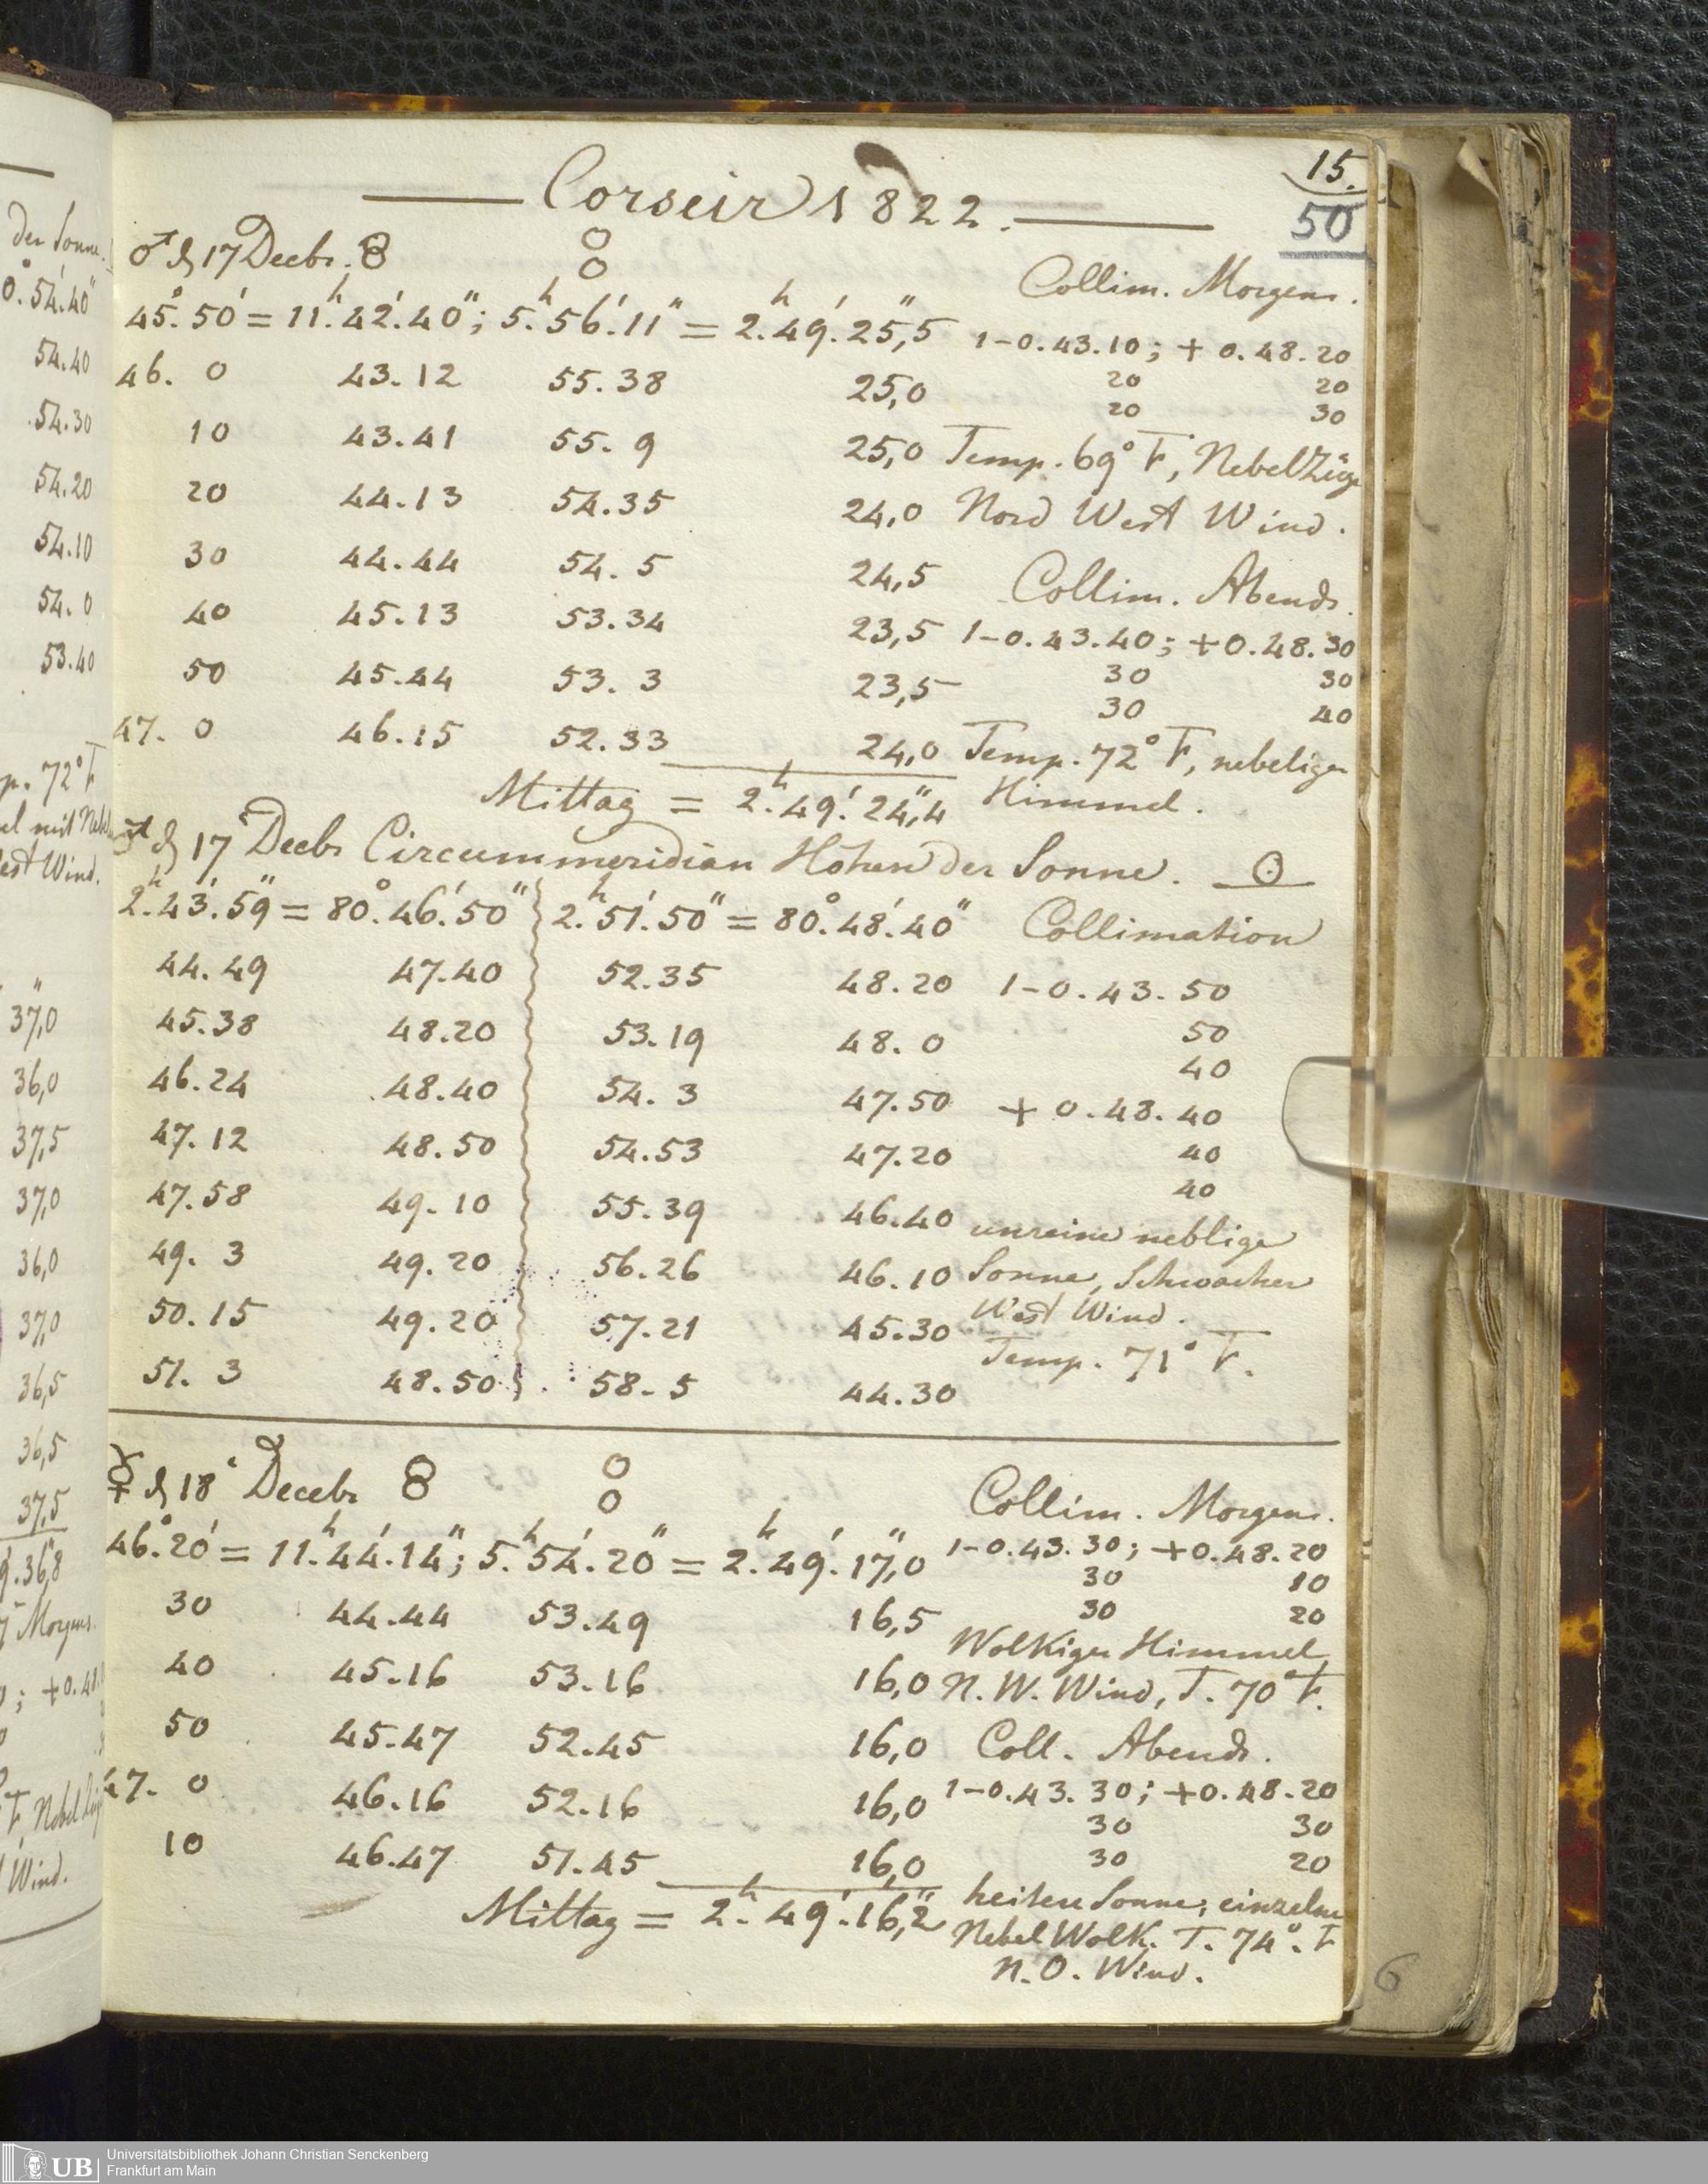 15.
50
Corseir 1822.
♂ d 17 Decbr.
Collim. Morgens.
45°.50' = 11h.42'.40"; 5h.56'.11" = 2h.49'.25",5 1-0.43.10; + 0.48.20
46. 0 43.12 55.38 25,0 20 20
20 30
10 43.41 55. 9 25,0 Temp. 69° F, NebelZüge
20 44.13 54.35 24,0 Nord West Wind.
30 44.44 54. 5 24,5 Collim. Abends.
40 45.13 53.34 23,5 1-0.43.40; +0.48.30
50 45.44 53. 3 23,5 30 30
30 40
47. 0 46.15 52.33 24,0 Temp. 72° F, nebeliger
Mittag = 2h.49'.24",4 Himmel.
♂ d 17 Decbr Circummeridian Höhen der Sonne. ☉
2h.43'.59" = 80°.46'.50" 2h.51'.50" = 80°.48'.40" Collimation
44.49 47.40 52.35 48.20 1-0.43.50
45.38 48.20 53.19 48. 0 50
40
46.24 48.40 54. 3 47.50 + 0.48.40
47.12 48.50 54.53 47.20 40
40
47.58 49.10 55.39 46.40 unreine neblige
49. 3 49.20 56.26 46.10 Sonne, Schwacher
West Wind.
50.15 49.20 57.21 45.30 Temp. 71° F.
51. 3 48.50 58. 5 44.30
☿ d 18 Decebr
Collim. Morgens.
46°.20' = 11h.44'.14"; 5h.54'.20" = 2h.49'.17",0 1-0.43.30; +0.48.20
30 10
30 44.44 53.49 16,5 30 20
Wolkiger Himmel
40 45.16 53.16 16,0 N. W. Wind, T. 70° F.
50 45.47 52.45 16,0 Coll. Abends.
47. 0 46.16 52.16 16,0 1-0.43.30; +0.48.20
30 30
10 46.47 51.45 16,0 30 20
Mittag = 2h.49'.16",2 heitere Sonne, einzelne
Nebel Wolk. T. 74°. F
N.O. Wind.
6
der Sonne.
0°.54'.40"
54.40
54.30
54.20
54.10
54. 0
53.40
p. 72° F
37,0
36,0
37,5
37,0
36,0
37,0
36,5
36,5
37,5
36,8
Morgens.
Wind.
UB Universitätsbibliothek Johann Christian Senckenberg
Frankfurt am Main